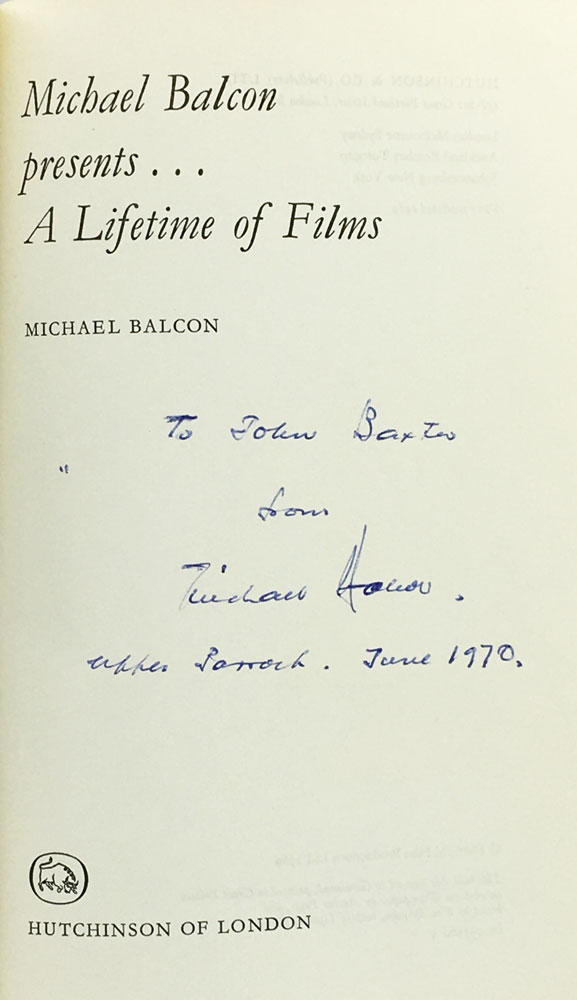 Michael Balcon
presents . . .
A Lifetime of Films
MICHAEL BALCON
To John Baxter
"
from
Michael Balcon.
Upper Parrock. June 1970.
HUTCHINSON OF LONDON